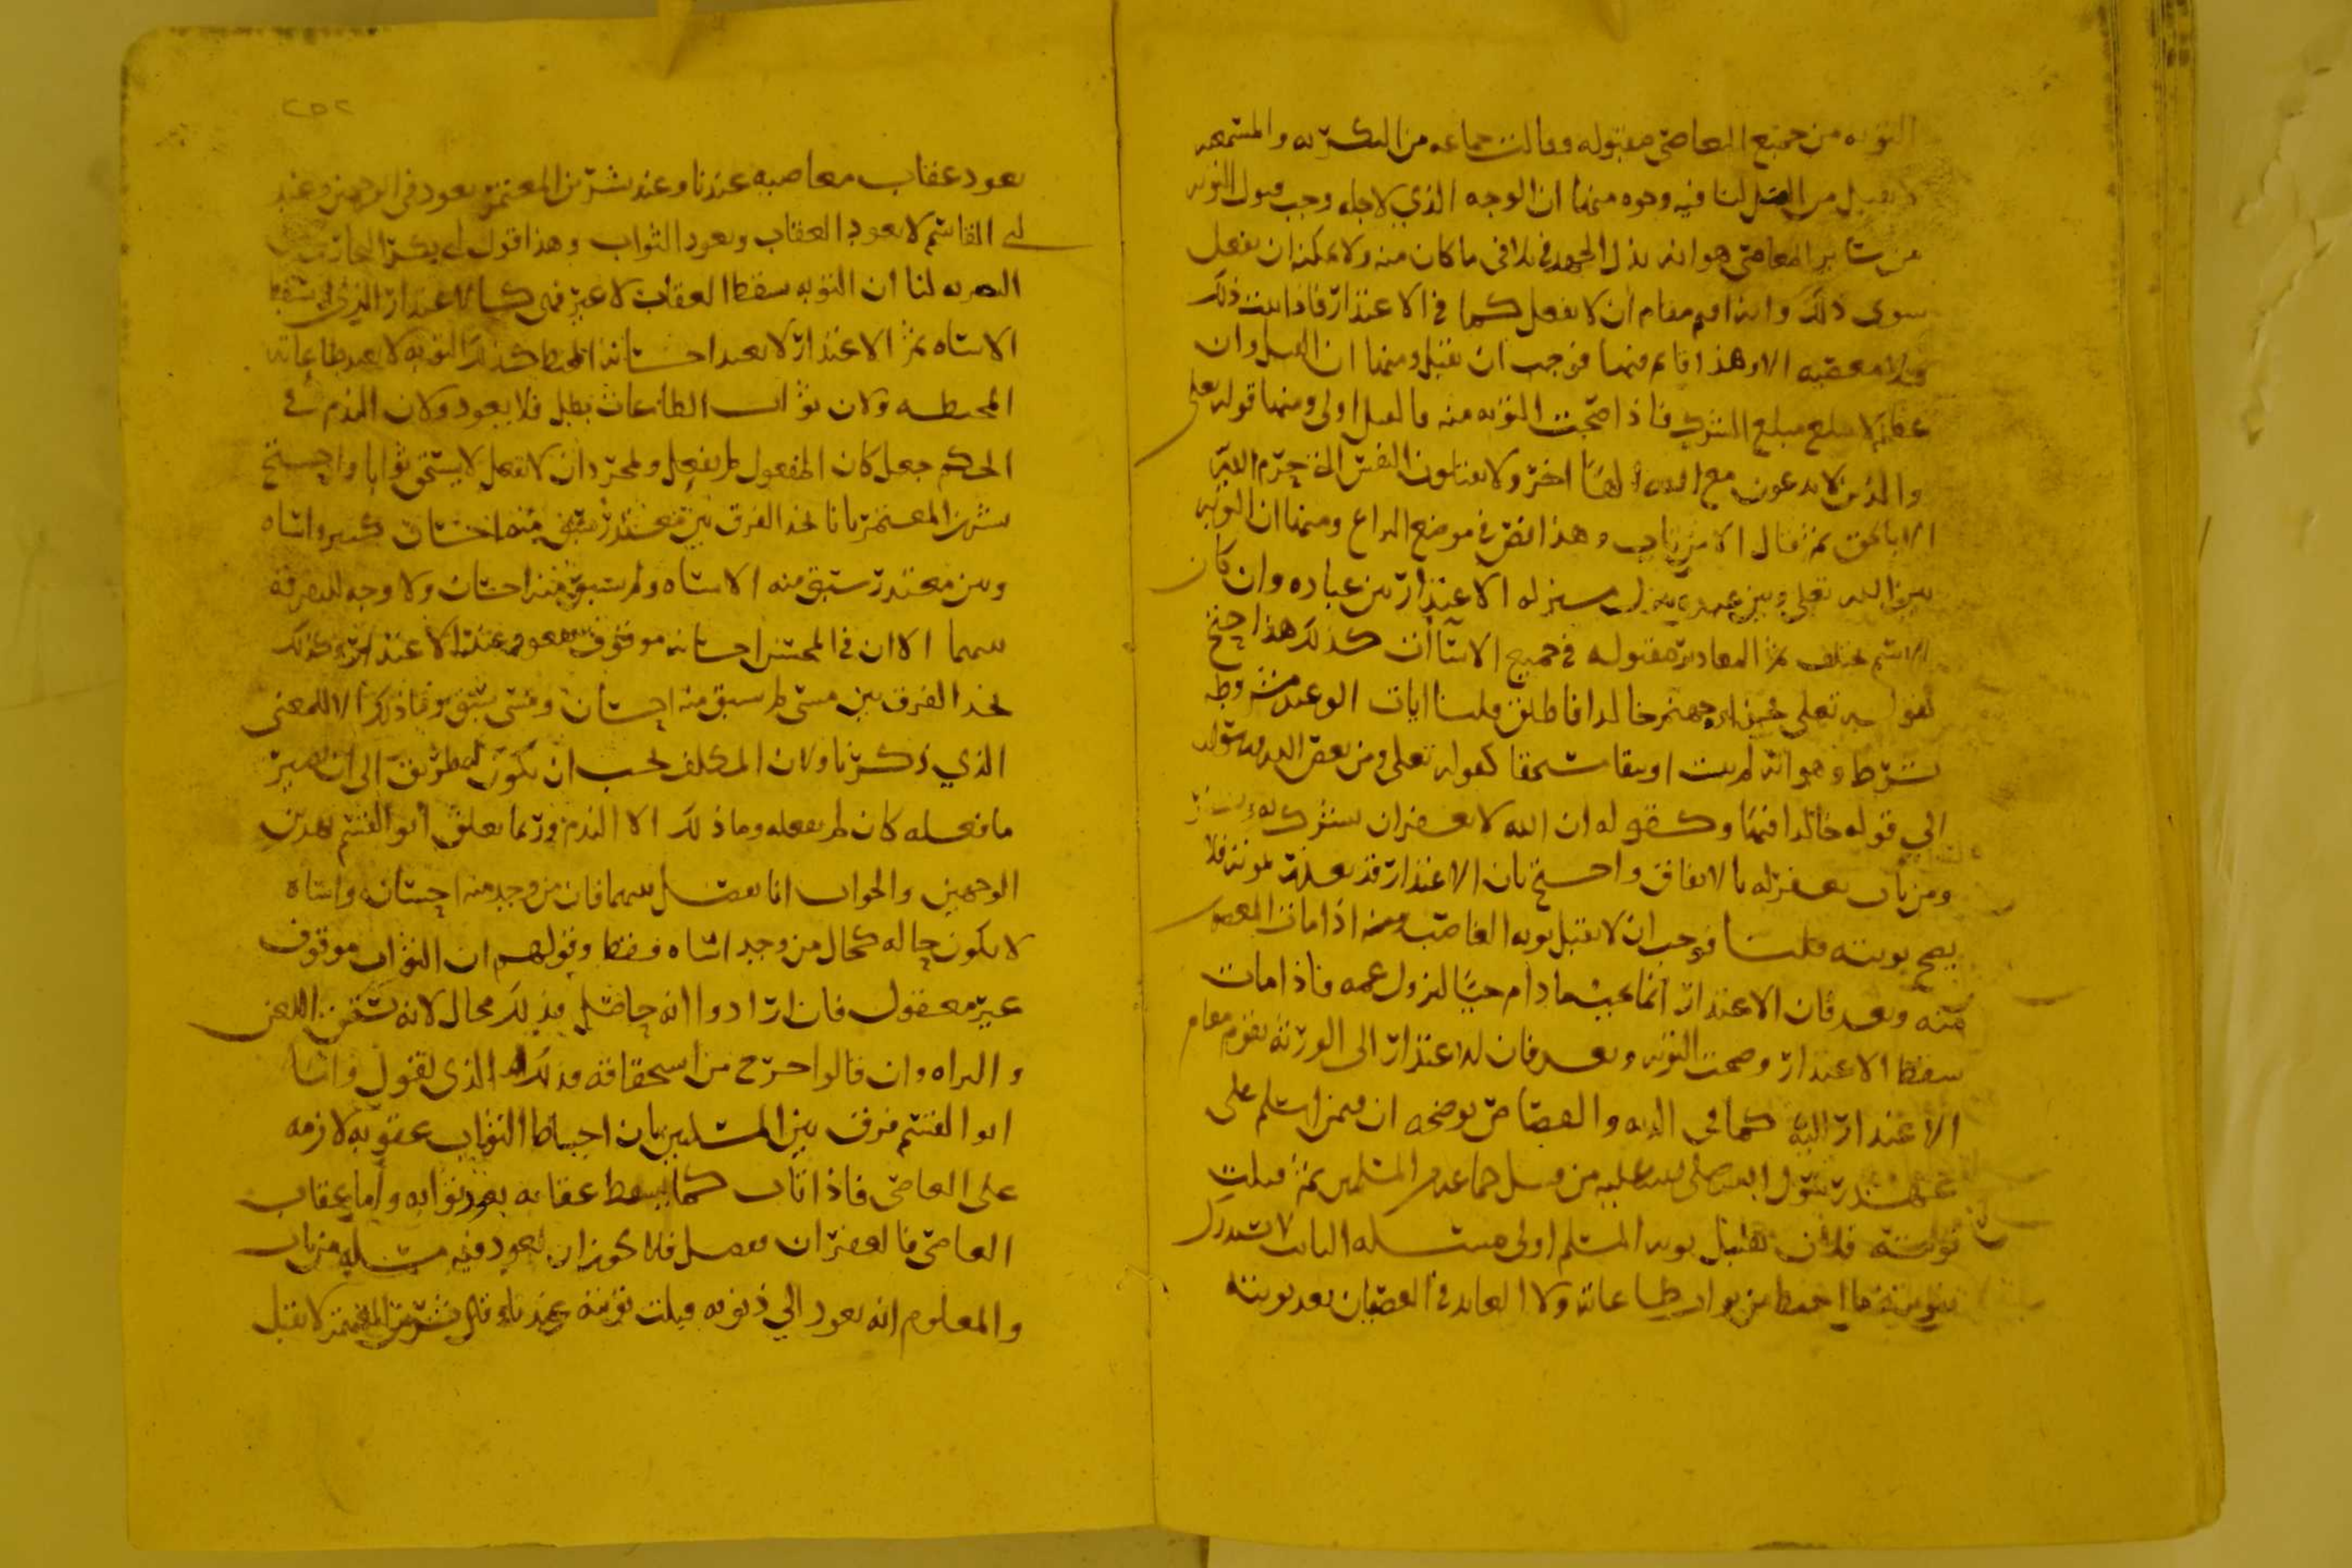 التوبه من جميع المعاصي مقبوله وقالت جماعه من البكريه والمشبهه
لا تقبل من القتل لنا فيه وجوه منها ان الوجه الذي لاجله وجب قبول التوبه
من سائر المعاصي هو انه بذل الجهد في تلافي ما كان منه ولا يمكنه ان يفعل
سوى ذلك وانه اقيم مقام ان لا يفعل كما في الاعتذار فاذا ثبت ذلك
فلا معصيه الا وهذا قائم فيها فوجب ان تقبل ومنها ان القتل وان
عظم لا يبلغ مبلغ الشرك فاذا صحت التوبه منه فالقتل اولى ومنها قوله تعلى
والذين لا يدعون مع الله الها اخر ولا يقتلون النفس التي حرم الله
الا بالحق ثم قال الا من تاب وهذا نص في موضع النزاع ومنها ان التوبه
بين الله تعلى وبين عبده ينزل منزله الاعتذار بين عباده وان كان
الاسم يختلف ثم المعاذير مقبوله في جميع الاساآت كذلك هذا احتج
بقوله تعلى فجزاوه جهنم خالدا فاطلق قلنا ايات الوعيد مشروطه
بشرط وهو انه لم يتب او يبقا مستحقا كقوله تعلى ومن يعص الله ورسوله
الي قوله خالدا فيها وكقوله ان الله لا يغفر ان يشرك به
ومن تاب يغفر له بالاتفاق واحتج بان الاعتذار قد تعذر بموته فلا
يصح توبته قلنا فوجب ان لا تقبل توبه الغاصب ومنه اذا مات المغصوب
منه وبعد فان الاعتذار انما يجب ما دام حيا ليزول غمه فاذا مات
سقط الاعتذار وصحت التوبه وبعد فان الاعتذار الى الورثه يقوم مقام
الاعتذار اليه كما في الديه والقصاص يوضحه ان فيمن اسلم على
عهد رسول الله صلى الله عليه من قتل جماعه من المسلمين ثم قبلت
توبته فلان تقبل توبه المسلم اولى مسئله التائب لا يستدرك
بتوبته ما احبط من ثواب طاعاته ولا العائد في العصيان بعد توبته
٢٥٢
يعود عقاب معاصيه عندنا وعند بشر بن المعتمر يعود في الوجهين وعند
ابي القاسم لا يعود العقاب ويعود الثواب وهذا قول
البصريه لنا ان التوبه سقط العقاب لا غير فهي كالاعتذار الذي يسقط
الاساه ثم الاعتذار لا يعيد احسانه المحبط كذلك التوبه لا تعيد طاعاته
المحبطه ولان ثواب الطاعات بطل فلا يعود ولان الندم في
الحكم جعل كان المفعول لم يفعل ولمجرد ان لا يفعل لا يستحق ثوابا واحتج
بشر بن المعتمر بانا نجد الفرق بين معتذر سبق منه احسان كثير واساه
وبين معتذر سبق منه الاساه ولم يسبق منه احسان ولا وجه للتفرقه
بينهما الا ان في المحسن احسانه موقوف يعود عند الاعتذار وكذلك
نجد الفرق بين مسي لم يسبق منه احسان ومسي سبق وما ذلك الا للمعنى
الذي ذكرنا ولان المكلف يجب ان يكون له طريق الى ان يصير
ما فعله كان لم يفعله وما ذلك الا الندم وربما تعلق ابو القسم بهذين
الوجهين والجواب انا نفصل بينهما فان من وجد منه احسان واساه
لا يكون حاله كحال من وجد اساه فقط وقولهم ان الثواب موقوف
غير معقول فان ارادوا انه حاصل فذلك محال لانه يستحق اللعن
والبراه وان قالوا خرج من استحقاقه فذلك الذي نقول واما
ابو القسم فرق بين المسئلتين بان احباط الثواب عقوبه لازمه
على العاصي فاذا تاب كما يسقط عقابه يعود ثوابه واما عقاب
العاصي فالغفران تفضل فلا يجوز ان يعود فيه مسئله من تاب
والمعلوم انه يعود الي ذنوبه قبلت توبته عندنا وقال بشر بن المعتمر لا تقبل